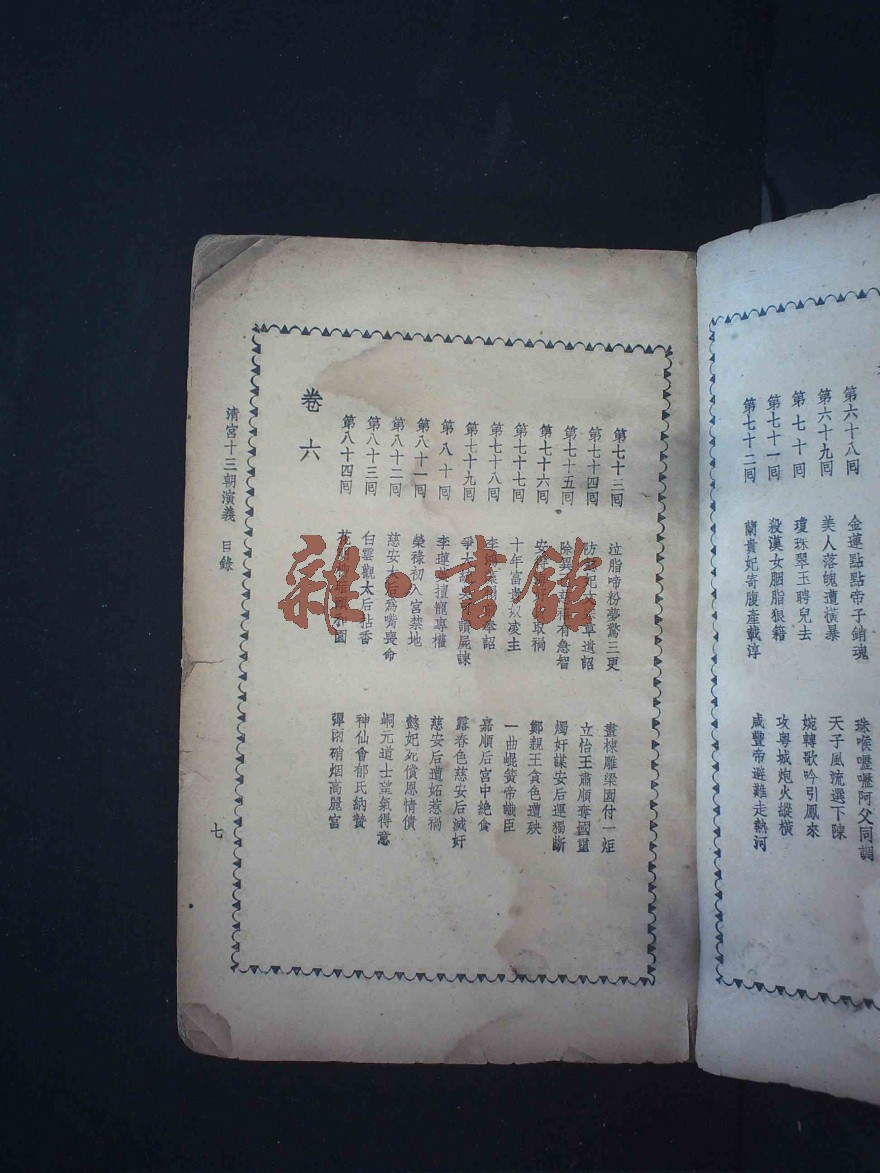 第六十八回 金蓮點點帝子銷魂 珠喉嚦嚦阿父同調
第六十九回 美人落魄遭橫暴 天子風流選下陳
第七十回 瓊珠翠玉聘兒去 婉轉歌吟引鳳來
第七十一回 殺漢女胭脂狼籍 攻粵城炮火縱橫
第七十二回 蘭貴妃寄腹產載淳 咸豐帝避難走熱河
第七十三回 泣脂啼粉夢驚三更 畫棟雕梁園付一炬
第七十四回 草遺詔 立怡王肅順奪國璽
第七十五回 除異 有急智 燭奸謀安后運獨斷
第七十六回 安 取禍 鄭親王貪色遭殃
第七十七回 十年富貴奴凌主 一曲崐簧帝識臣
第七十八回 李 詔 嘉順后宮中絕食
第七十九回 爭大 韻屍諫 露春色慈安后滅奸
第八十回 李蓮英擅寵專權 慈安后遭妬惹禍
第八十一回 榮祿初入宮禁地 懿妃死償恩情債
第八十二回 慈安太后為嘴喪命 峒元道士望氣得意
第八十三回 白雲觀太后拈香 神仙會郁氏納贄
第八十四回 園 彈雨硝烟高麗宮
卷六
清宮十三朝演義 目錄
七
雜·書館